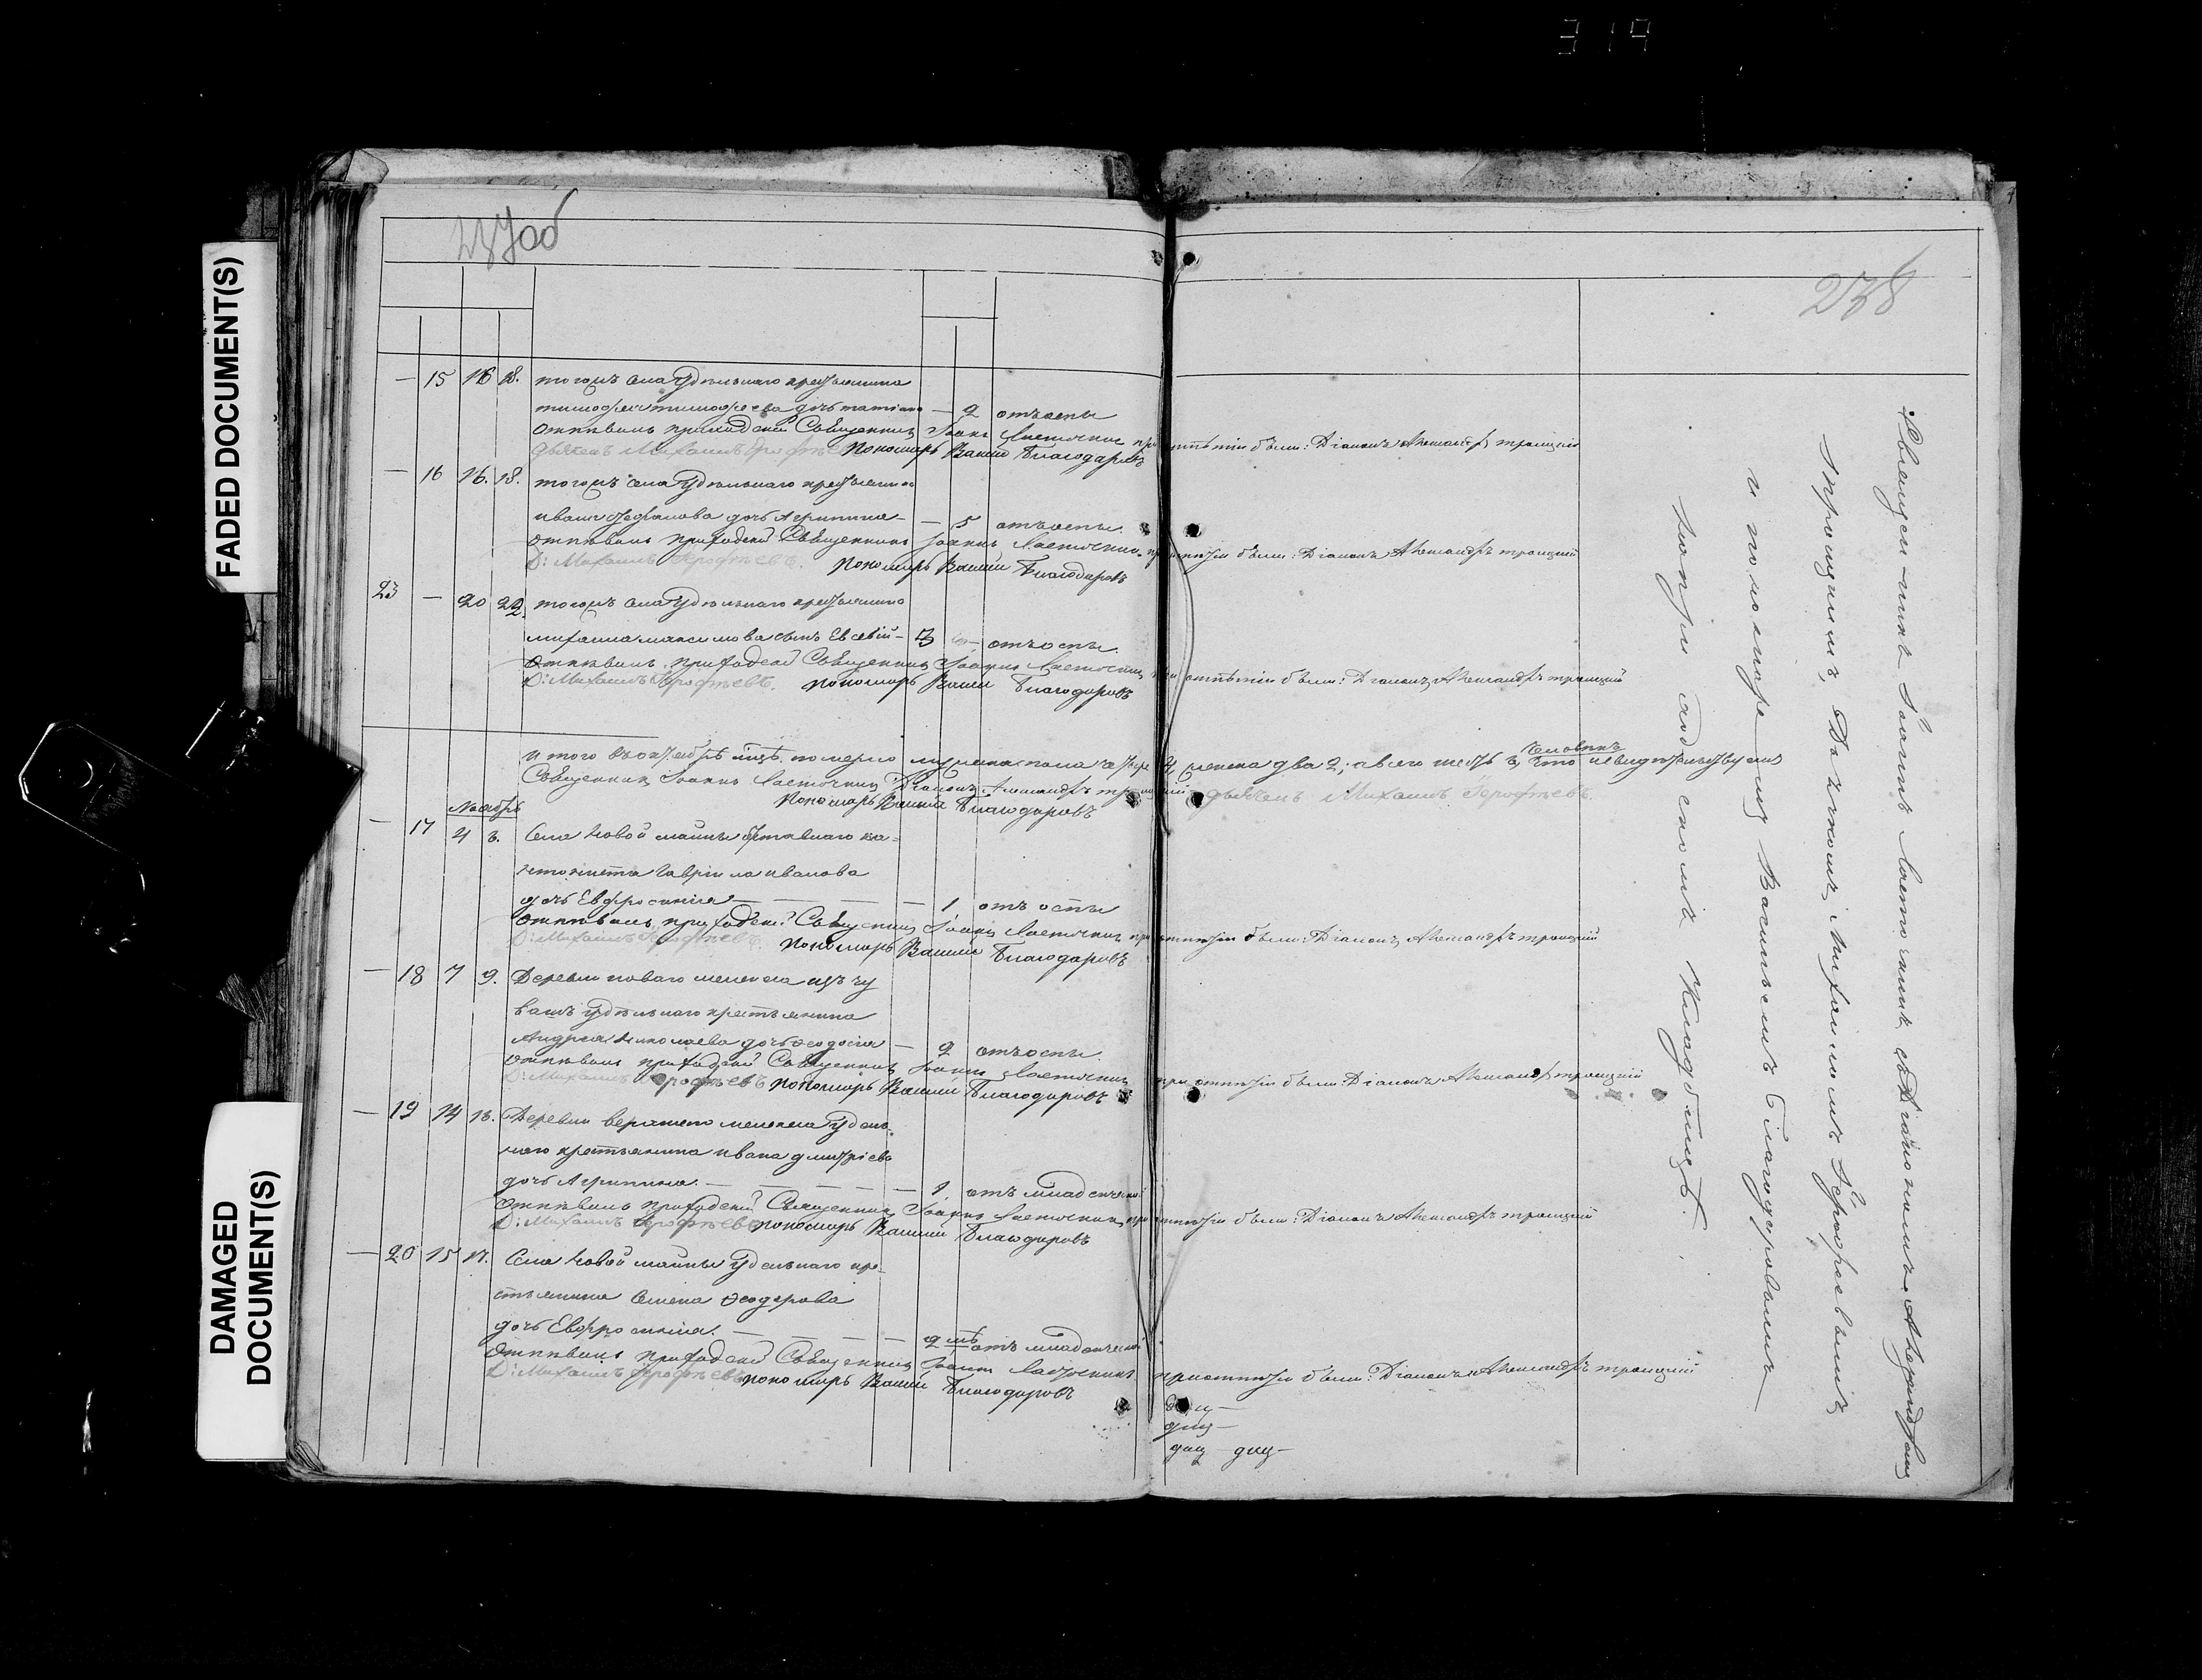 319
FADED DOCUMENT(S)
DAMAGED DOCUMENT(S)
237об
238
— 15 16 18. тогожъ села Удѣльнаго крестьянина
тимофея тимофеева дочь татiана — 2 отъ оспы
Отпѣвалъ приходской Священникъ Iоаннъ Ласточкинъ при отпѣтiи были: Дiаконъ Александръ троицкiй
дьячекъ Михаилъ Ерофѣевъ Пономарь Василiй Благодаровъ
— 16 16. 18. тогожъ села Удѣльнаго крестьянина
ивана дочь Агрипина — — 5 отъ оспы.
Отпѣвалъ приходской Священникъ Iоаннъ Ласточкинъ при отпѣтiи были: Дiаконъ Александръ троицкiй
Д: Михаилъ Ерофѣевъ. Пономарь Василiй Благодаровъ
23 — 20 22. тогожъ села Удѣльнаго крестьянина
михаила максимова сынъ Евсевiй — 3 — отъ оспы.
Отпѣвалъ приходской Священникъ Iоаннъ Ласточкинъ при отпѣтiи были: Дiаконъ Александръ троицкiй
Д: Михаилъ Ерофѣевъ. пономарь Василiй Благодаровъ
итого въ октябрѣ мцѣ померло мужеска пола четыре 4, женска два 2; а всего шесть 6, человѣкъ что и свидѣтельствуемъ
Священникъ Iоаннъ Ласточкинъ Дiаконъ Александръ троицкiй дьячекъ Михаилъ Ерофѣевъ.
Пономарь Василiй Благодаровъ
Ноябрь
— 17 4 6. Села Новой майны отставнаго
гаврiила иванова
дочь Евфросинiя — — — — 1 отъ оспы
Отпѣвалъ приходской Священникъ Iоаннъ Ласточкинъ при отпѣтiи были: Дiаконъ Александръ троицкiй
Д: Михаилъ Ерофѣевъ. Пономарь Василiй Благодаровъ
— 18 7 9. Деревни новаго мелекеса изъ чу
вашъ удѣльнаго крестьянина
Андрея николаева дочь Ѳеодосiя — 2 отъ оспы.
Отпѣвалъ приходской Священникъ Iоаннъ Ласточкинъ при отпѣтiи были: Дiаконъ Александръ троицкiй
Д: Михаилъ Ерофѣевъ Пономарь Василiй Благодаровъ
— 19 14 16. Деревни верхняго мелекеса Удѣль-
наго крестьянина ивана дмитрiева
дочь Агрипина. — — — — 1. отъ младенческой
Отпѣвалъ приходской Священникъ Iоаннъ Ласточкинъ при отпѣтiи были: Дiаконъ Александръ троицкiй
Д: Михаилъ Ерофѣевъ пономарь Василiй Благодаровъ
— 20 15 17. Села Новой майны Удѣльнаго кре-
стьянина Семена Ѳеодорова
дочь Евфросинiя. — — — — 2 мѣ отъ младенческой
Отпѣвалъ приходской Священникъ Iоаннъ Ласточкинъ при отпѣтiи были: Дiаконъ Александръ троицкiй
Д: Михаилъ Ерофѣевъ пономарь Василiй Благодаровъ
Священникъ Iоаннъ Ласточкинъ съ Дiакономъ Александромъ
троицкимъ, Дьячкомъ Михаиломъ Ерофеевымъ
и пономаремъ Васильемъ Благодаровымъ —
на приходскомъ Кладбищѣ.